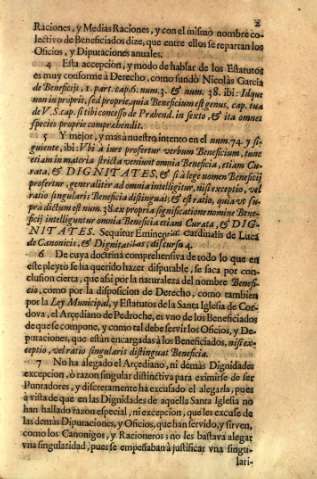 2
Raciones, y Medias Raciones, y con el mismo nombre co-
lectivo de Beneficiados dize, que entre ellos se repartan los
Oficios, y Diputaciones anuales.
4 Esta accepcion, y modo de hablar de los Estatutos
es muy conforme à Derecho, como fundò Nicolàs Garcia
de Beneficijs, 1. part. cap. 6. num. 3. & num. 38. ibi: Idque
non in proprie, sed proprie, quia Beneficium est genus, cap. tua
de V. S. cap. si tibi concesso de Præbend. in sexto, & ita omnes
species proprie comprehendit.
5 Y mejor, y mas à nuestro intento en el num. 74. y si-
guiente, ibi: Vbi à iure profertur verbum Beneficium, tunc
etiam in materia stricta veniunt omnia Beneficia, etiam Cu-
rata, & DIGNITATES, & si à lege nomen Beneficij
profertur, generaliter ad omnia intelligitur, nisi exceptio, vel
ratio singularis Beneficia distinguat; & est ratio, quia vt su-
pra dictum est num. 38. ex propria significatione nomine Bene-
ficij intelliguntur omnia Beneficia etiam Curata, & DIG-
NITATES. Sequitur Eminentis. Cardinalis de Luca
de Canonicis, & Dignitatibus, discurso 4.
6 De cuya doctrina comprehensiva de todo lo que en
este pleyto se ha querido hazer disputable, se saca por con-
clusion cierta, que assi por la naturaleza del nombre Benefi-
cio, como por la disposicion de Derecho, como tambien
por la Ley Municipal, y Estatutos de la Santa Iglesia de Cor-
dova, el Arcediano de Pedroche, es vno de los Beneficiados
de que se compone, y como tal debe servir los Oficios, y De-
putaciones, que estàn encargadas à los Beneficiados, nisi ex-
ceptio, vel ratio singularis distinguat Beneficia.
7 No ha alegado el Arcediano, ni demàs Dignidades
excepcion, ò razon singular distinctiva para eximirse de ser
Puntadores, y discretamente ha escusado el alegarla, pues
à vista de que en las Dignidades de aquella Santa Iglesia no
han hallado razon especial, ni excepcion, que les escuse de
las demàs Diputaciones, y Oficios, que han servido, y sirven,
como los Canonigos, y Racioneros, no les bastava alegar
vna singularidad, pues se empeñaban à justificar vna singu-
lari-